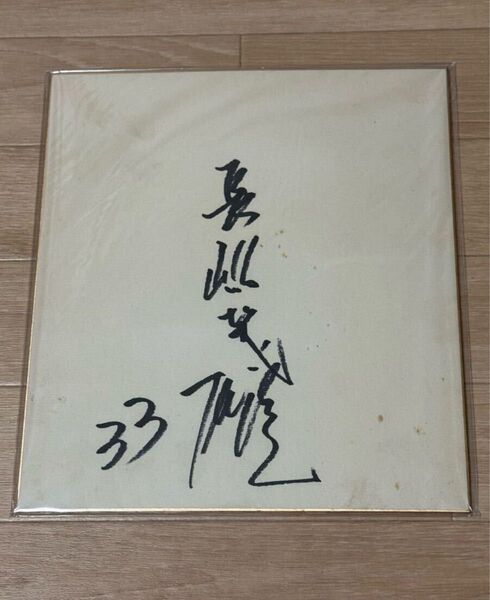 長嶋茂雄
33